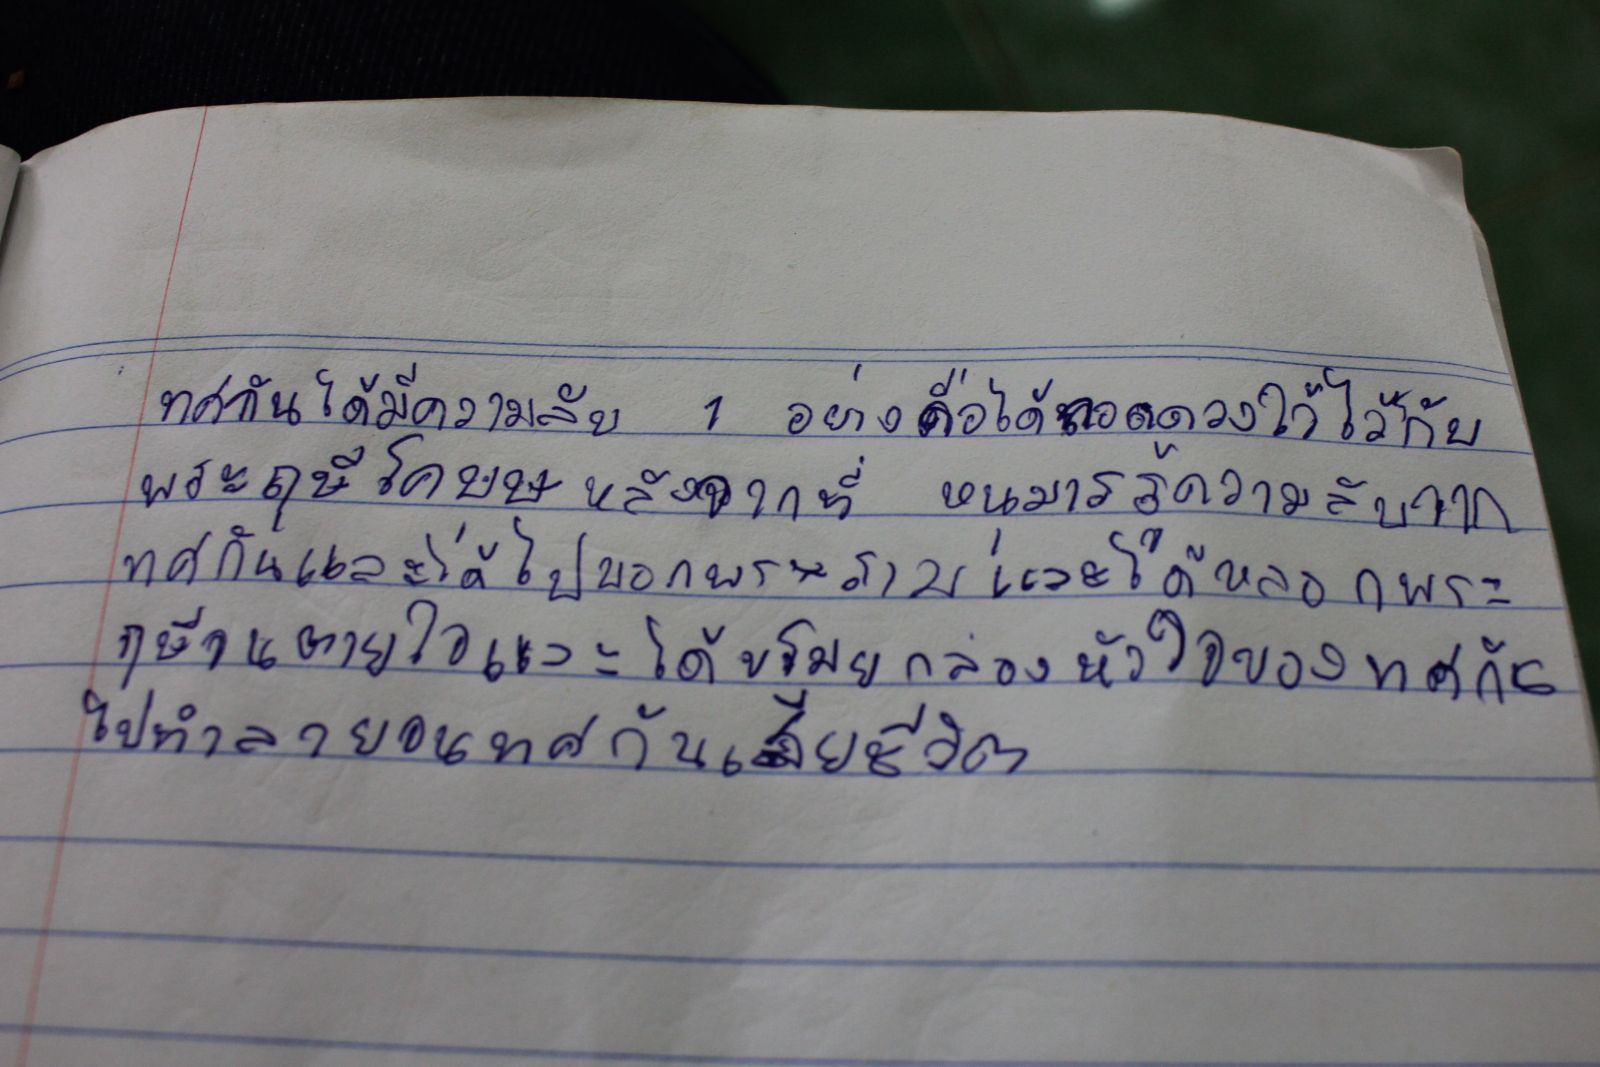 ทศกันได้มีความลับ 1 อย่างคือได้ถอดดวงใว้ไว้กับ
พระฤษีโคบุษ หลังจากที่ หนุมารรู้ความลับจาก
ทศกันและได้ไปบอกพระรามและได้หลอกพระ
ฤษีจนตายใจและได้ขโมยกล่องหัวใจของทศกัน
ไปทำลายจนทศกันเสียชีวิต